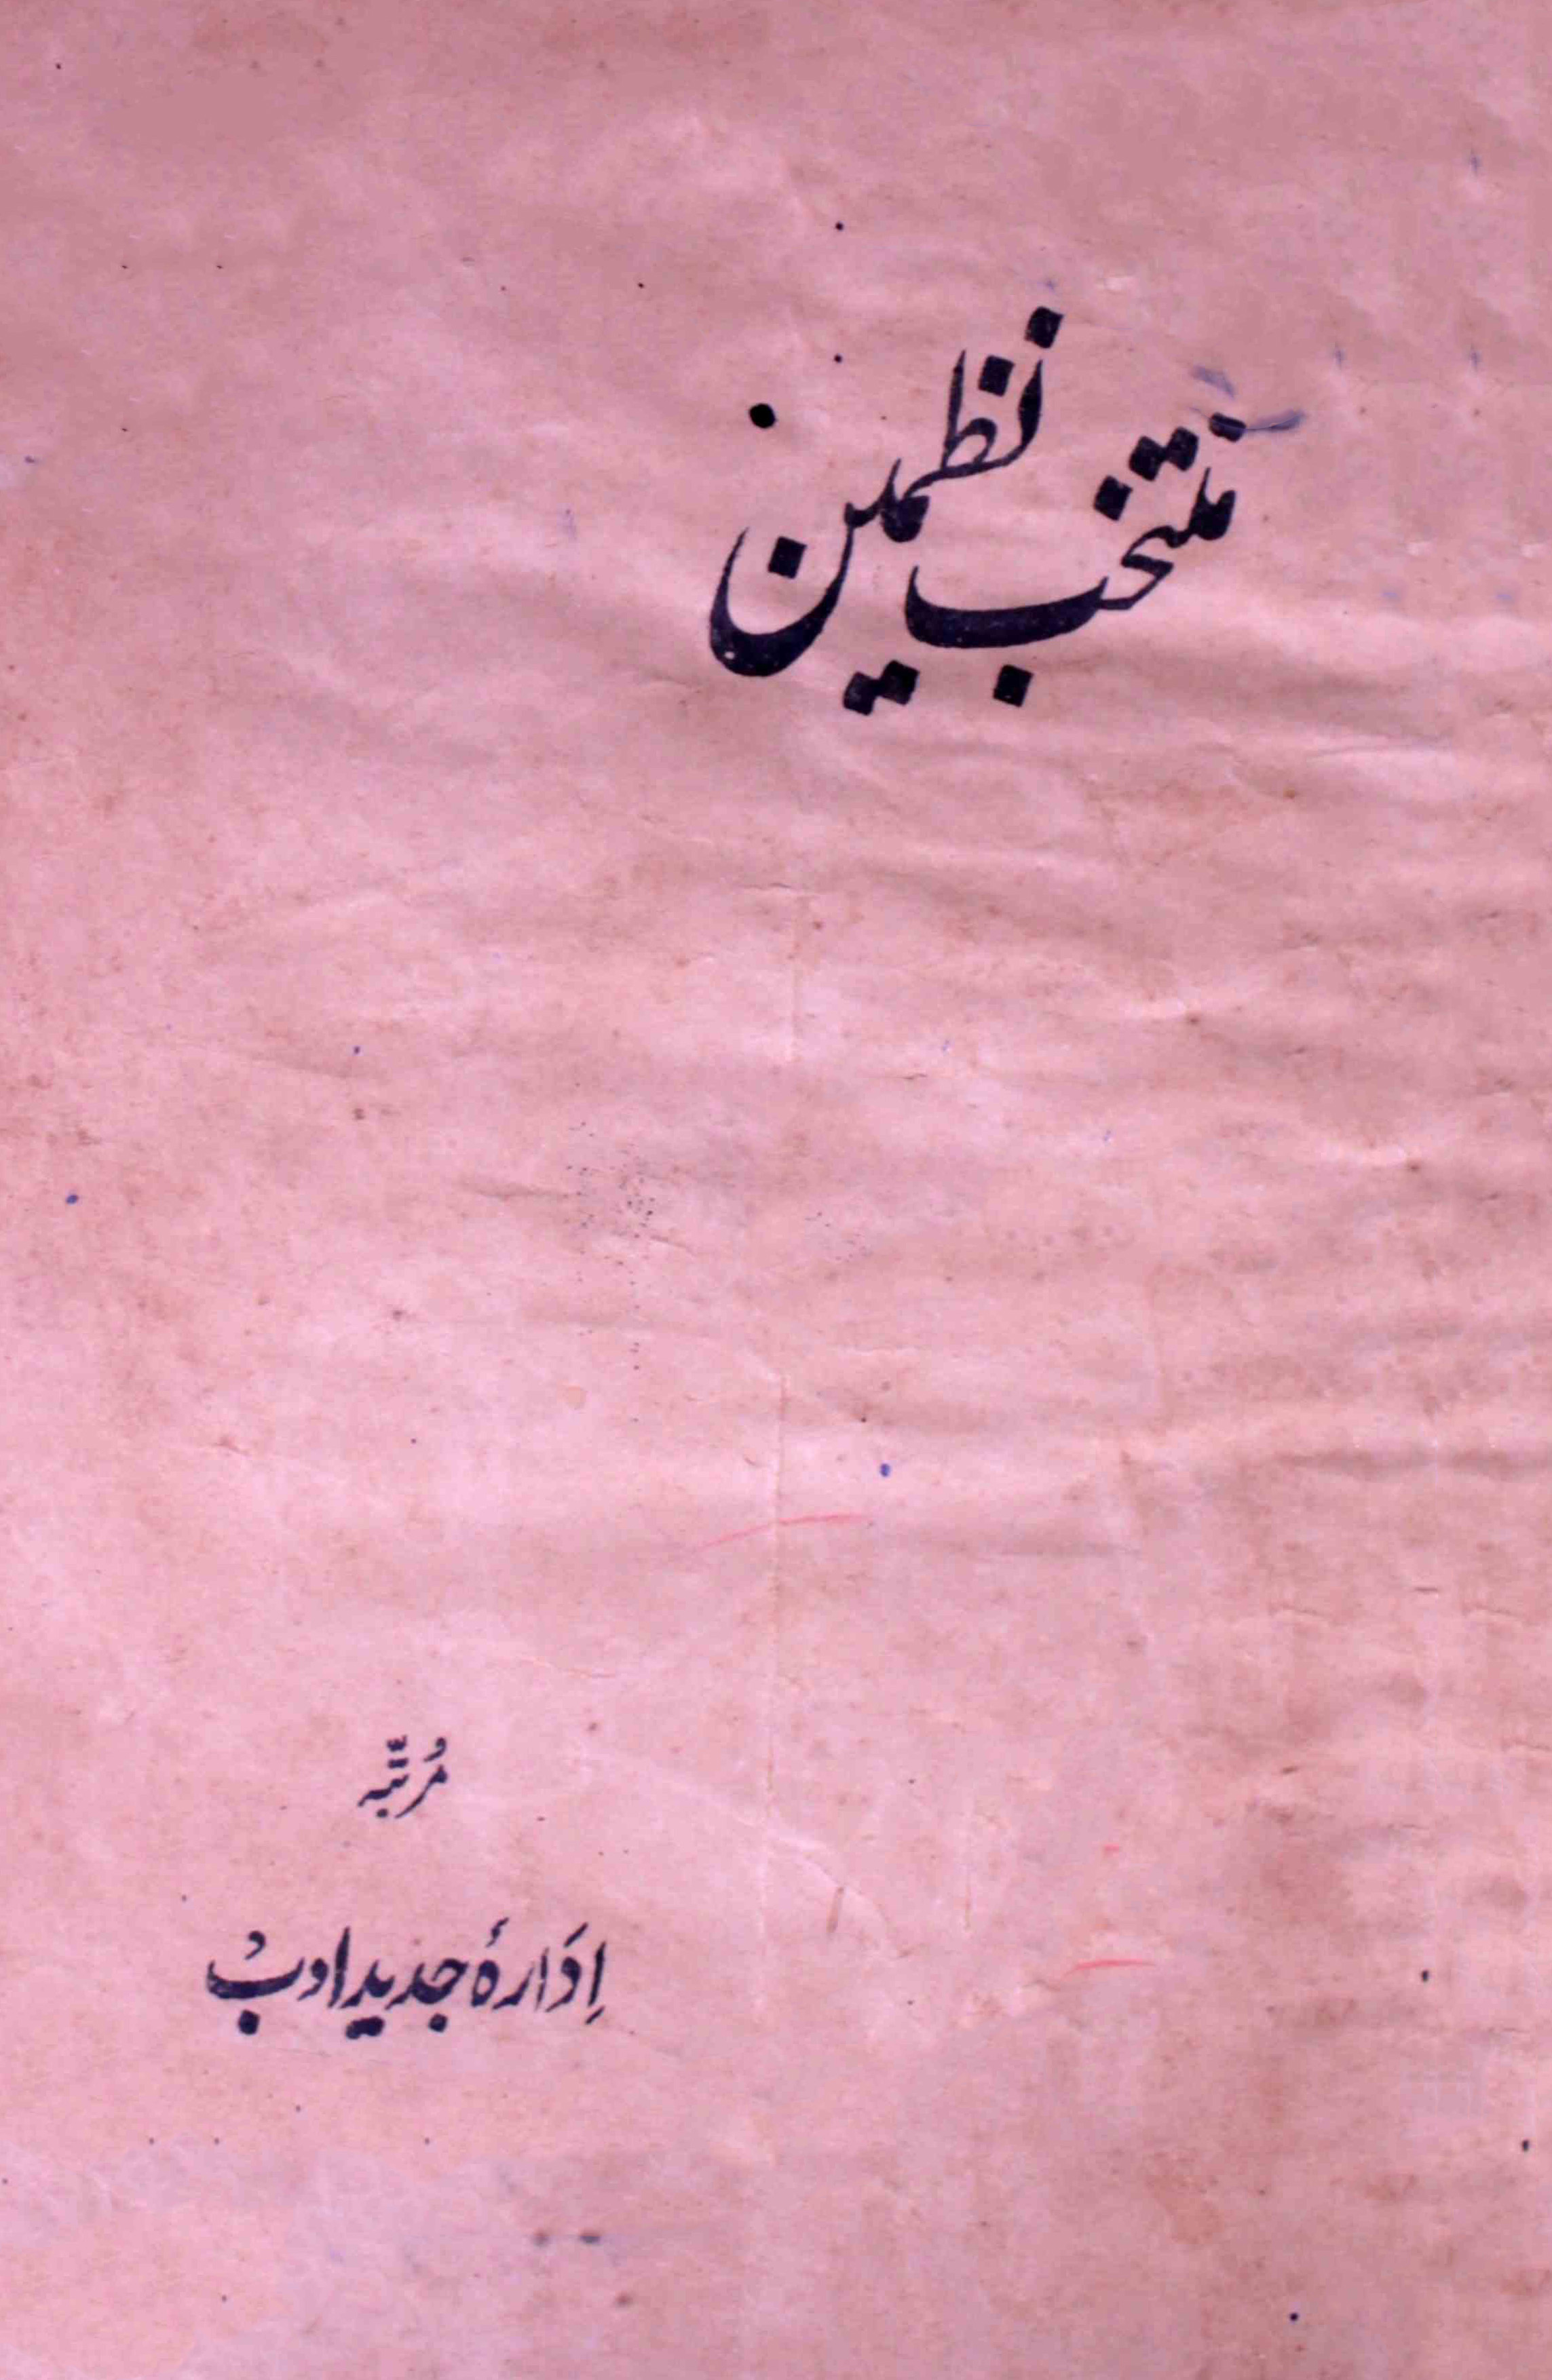 منتخب نظمین
مُرتَّبہ
اِدَارۂ جدید ادبْ